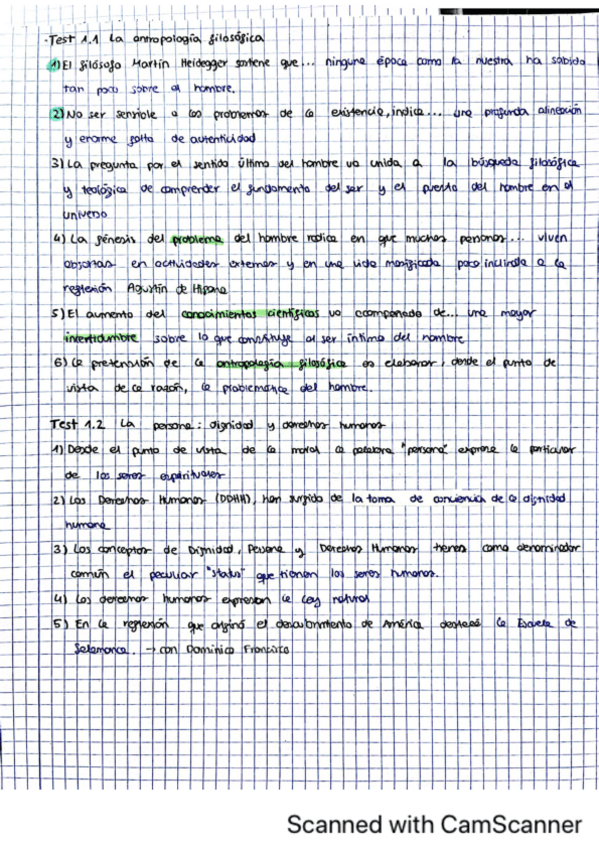 ·Test 1.1 La antropología filosófica
1) El filósofo Martín Heidegger sostiene que... ninguna época como la nuestra ha sabido
tan poco sobre el hombre.
2) No ser sensible a los problemas de la existencia, indica... una profunda alineación
y enorme falta de autenticidad
3) La pregunta por el sentido último del hombre va unida a la búsqueda filosófica
y teológica de comprender el fundamento del ser y el puesto del hombre en el
universo
4) La génesis del problema del hombre radica en que muchas personas... viven
absortas en actividades externas y en una vida masificada poco inclinada a la
reflexión Agustín de Hipona
5) El aumento del conocimientos científicos va acompañado de... una mayor
invertidumbre sobre lo que constituye al ser íntimo del hombre
6) La pretensión de la antropología filosófica es elaborar, desde el punto de
vista de la razón, la problemática del hombre.
Test 1.2 La persona: dignidad y derechos humanos
1) Desde el punto de vista de la moral la palabra "persona" expresa lo particular
de los seres espirituales
2) Los Derechos Humanos (DDHH), han surgido de la toma de conciencia de la dignidad
humana
3) Los conceptos de Dignidad, Persona y Derechos Humanos tienen como denominador
común el peculiar "status" que tienen los seres humanos.
4) Los derechos humanos expresan la Ley natural
5) En la reflexión que originó el descubrimiento de América destacó la Escuela de
Salamanca. → con Dominico Francisco
Scanned with CamScanner